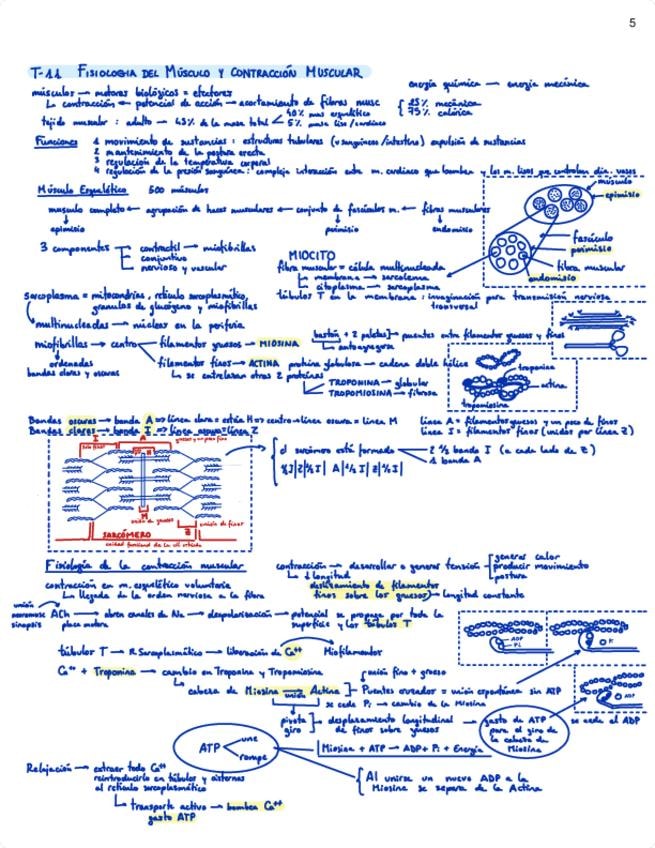 5
T-11 FISIOLOGIA DEL MÚSCULO Y CONTRACCIÓN MUSCULAR
energía química → energía mecánica
músculos → motores biológicos = efectores
La contracción ← potencial de acción → acortamiento de fibras musc { 25% mecánica
75% calórica
tejido muscular : adulto → 45% de la masa total < 40% mus esquelético
5% musc liso/cardiaco
Funciones 1 movimiento de sustancias : estructuras tubulares (v sanguíneos/intestino) expulsión de sustancias
2 mantenimiento de la postura erecta
3 regulación de la temperatura corporal
4 regulación de la presión sanguínea : compleja interacción entre m. cardiaco que bombea y los m. lisos que controlan diám. vasos
Músculo Esquelético 500 músculos
músculo
epimisio
músculo completo ← agrupación de haces musculares ← conjunto de fascículos m. ← fibras musculares
epimisio perimisio endomisio
fascículo
perimisio
fibra muscular
endomisio
3 componentes contractil → miofibrillas
conjuntivo
nervioso y vascular
MIOCITO
fibra muscular = célula multinucleada
membrana → sarcolema
citoplasma → sarcoplasma
túbulos T en la membrana : invaginación para transmisión nerviosa
transversal
sarcoplasma = mitocondrias, retículo sarcoplasmático,
gránulos de glucógeno y miofibrillas
multinucleadas → núcleos en la periferia
miofibrillas → centro filamentos gruesos → MIOSINA bastón + 2 paletas] → puentes entre filamentos gruesos y finos
ordenadas
bandas claras y oscuras
filamentos finos → ACTINA proteína globulosa → cadena doble hélice
se entrelazan otras 2 proteínas
TROPONINA → globular
TROPOMIOSINA → fibrosa
troponina
actina
tropomiosina
Bandas oscuras → banda A => línea clara = estría H => centro = línea oscura = línea M
Bandas claras → banda I => línea oscura = línea Z
línea A = filamentos gruesos y un poco de finos
línea I = filamentos finos (unidos por línea Z)
I A
M
Z
SARCÓMERO
el sarcómero está formado 2 ½ banda I (a cada lado de Z)
1 banda A
½I|Z|½I| A|½I|Z|½I|
Fisiología de la contracción muscular
contracción → desarrollar o generar tensión generar calor
producir movimiento
postura
↓ longitud
deslizamiento de filamentos
finos sobre los gruesos → longitud constante
contracción en m. esquelético voluntaria
La llegada de la orden nerviosa a la fibra
unión
sinapsis
ACh → abren canales de Na → despolarización → potencial se propaga por toda la
placa motora
superficie y los túbulos T
túbulo T → R Sarcoplasmático → liberación de Ca++ Miofilamentos
ADP
Pi
Ca++ + Troponina → cambio en Troponina y Tropomiosina
unión fino + grueso
cabeza de Miosina → Actina ] Puentes cruzados = unión espontánea sin ATP
unión
se cede Pi → cambio de la Miosina
pivota
giro
desplazamiento longitudinal
de finos sobre gruesos
gasto de ATP
para el giro de
la cabeza de
Miosina
se cede al ADP
ATP une
rompe
Miosina + ATP → ADP + Pi + Energía
Al unirse un nuevo ADP a la
Miosina se separa de la Actina
Relajación → extraer todo Ca++
reintroducirlo en túbulos y cisternas
al retículo sarcoplasmático
transporte activo → bombea Ca++
gasto ATP